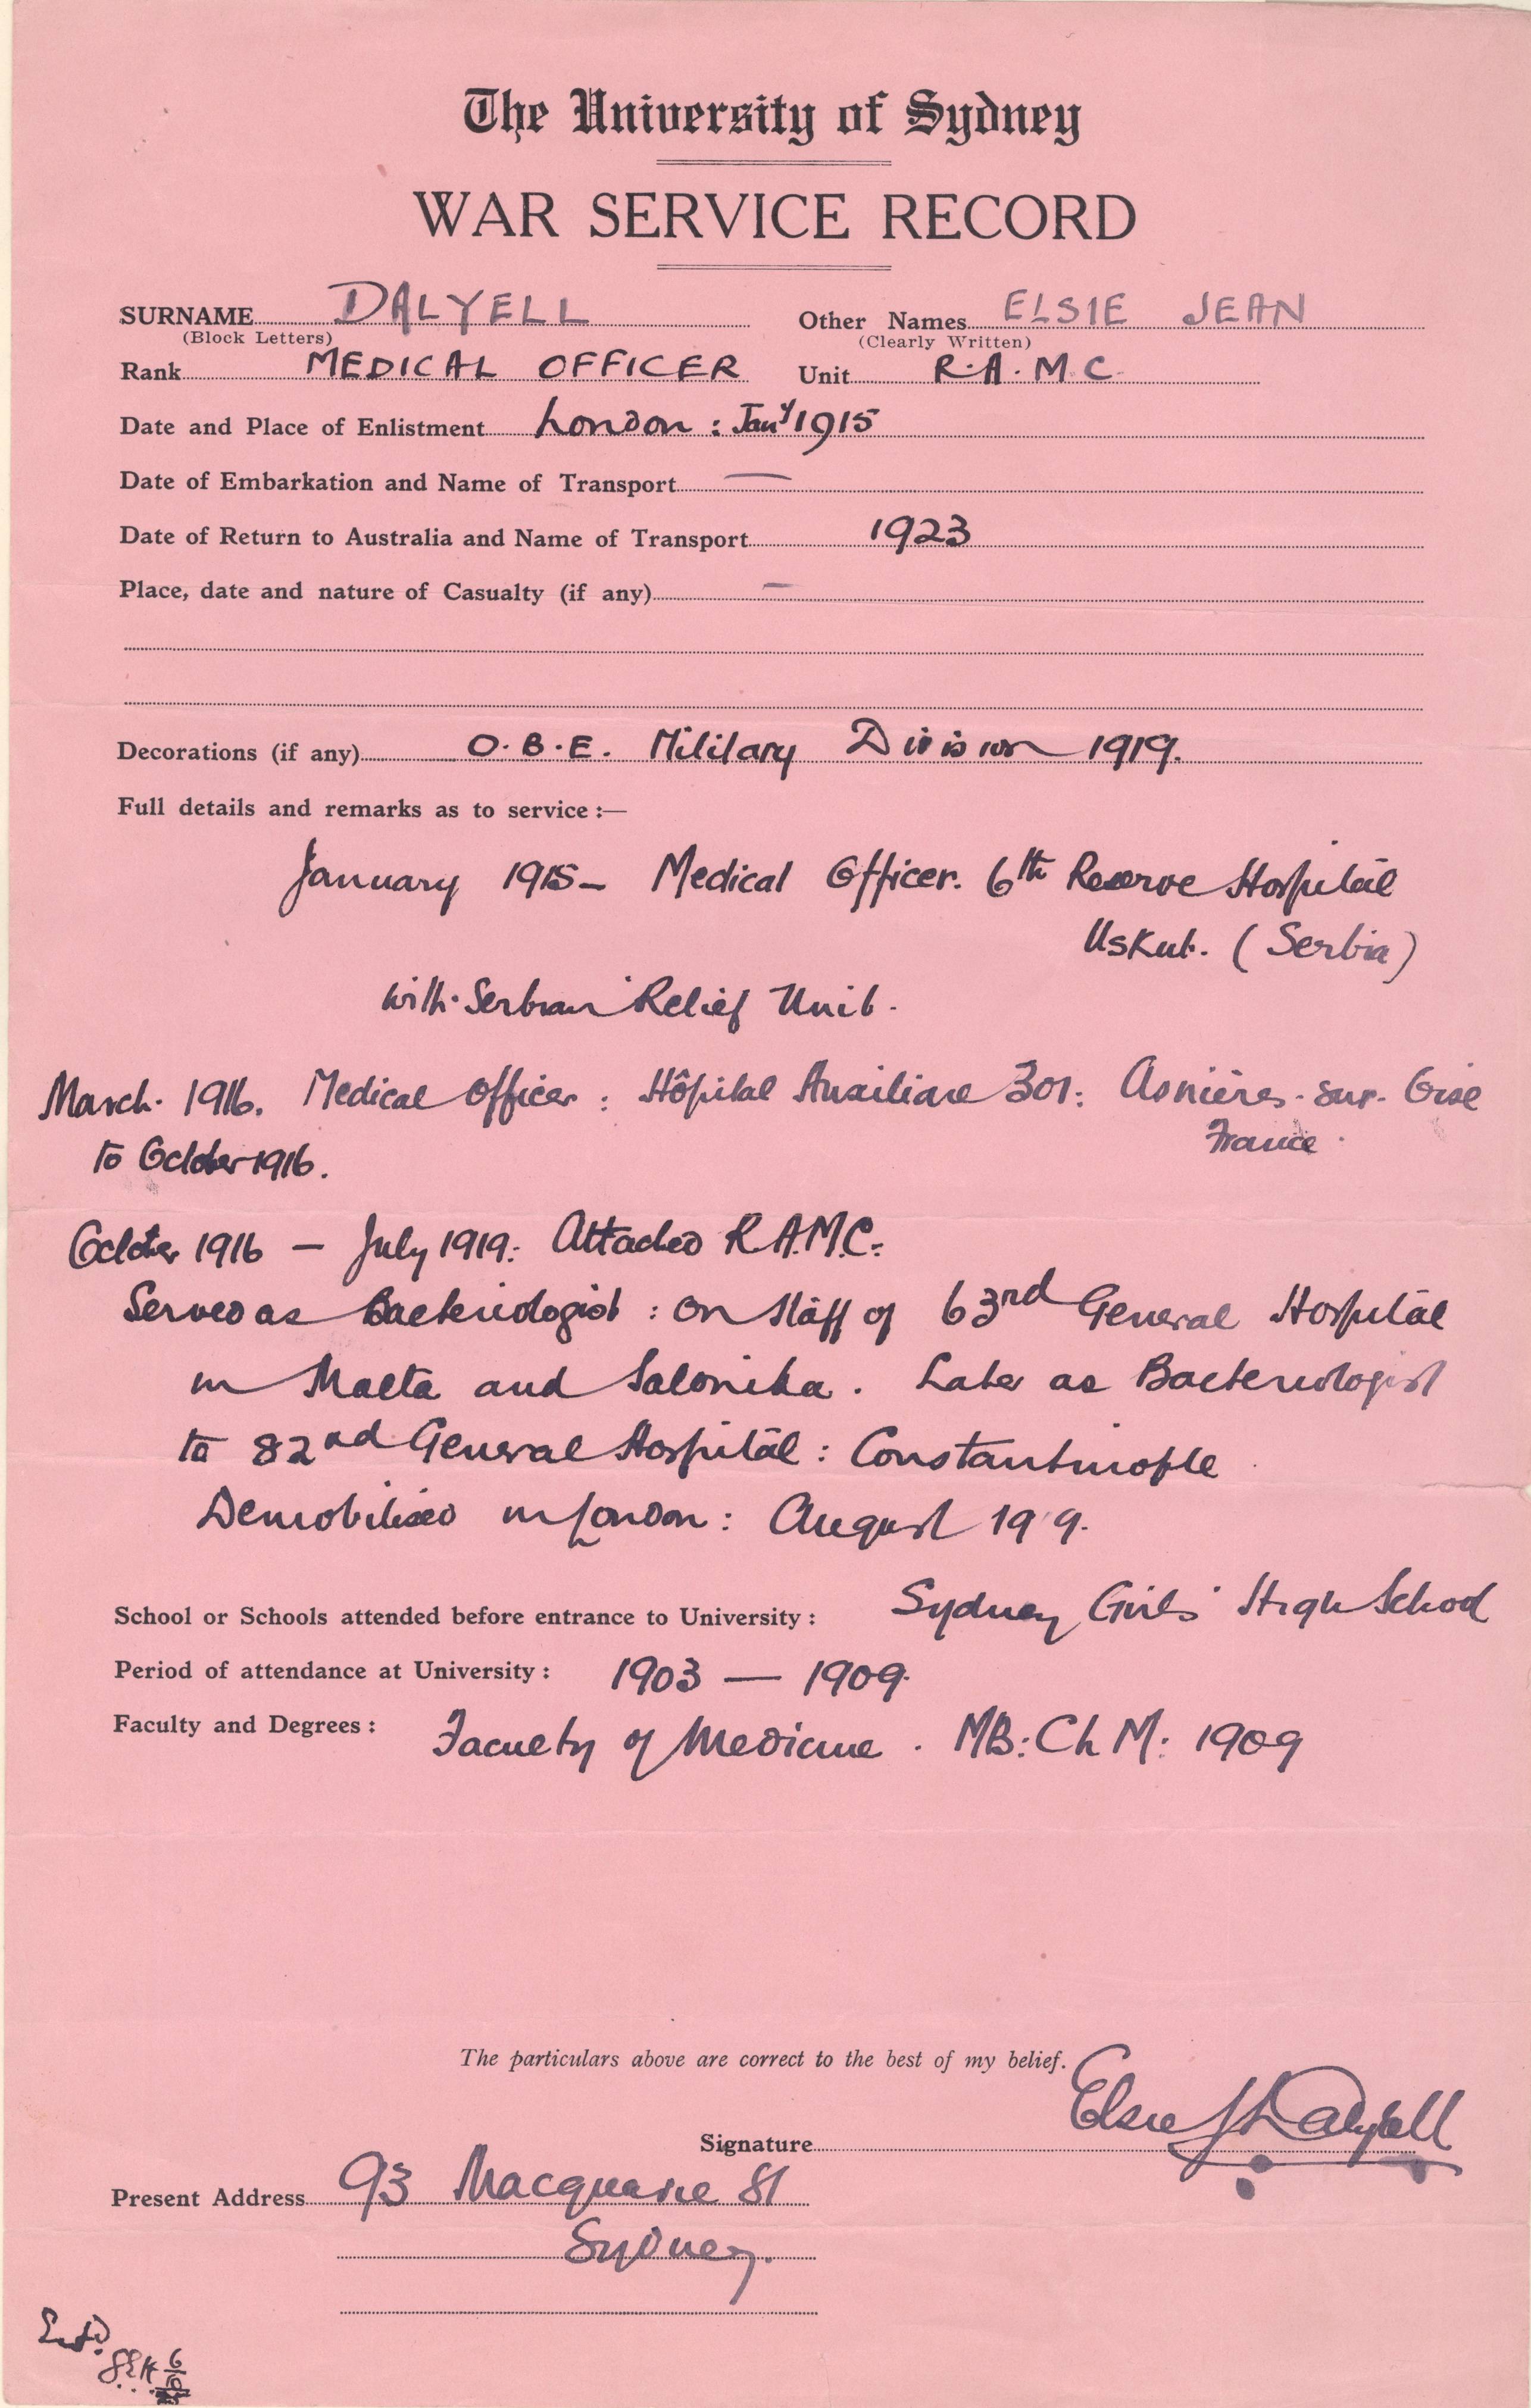 The University of Sydney
WAR SERVICE RECORD
SURNAME DALYELL Other Names ELSIE JEAN
(Block Letters) (Clearly Written)
Rank MEDICAL OFFICER Unit R.A.M.C.
Date and Place of Enlistment London : Jany 1915
Date of Embarkation and Name of Transport —
Date of Return to Australia and Name of Transport 1923
Place, date and nature of Casualty (if any) —
Decorations (if any) O.B.E. Military Division 1919.
Full details and remarks as to service :—
January 1915 – Medical Officer. 6th Reserve Hospital
Uskub. (Serbia)
with Serbian Relief Unit.
March. 1916. Medical Officer : Hôpital Auxiliare 301: Asnières-sur-Oise
France.
to October 1916.
October 1916 — July 1919: Attached R.A.M.C.
Served as Bacteriologist : on staff of 63rd General Hospital
in Malta and Salonika. Later as Bacteriologist
to 82nd General Hospital : Constantinople
Demobilised in London : August 1919.
School or Schools attended before entrance to University : Sydney Girls' High School
Period of attendance at University : 1903 — 1909.
Faculty and Degrees : Faculty of Medicine. MB: Ch M: 1909
The particulars above are correct to the best of my belief.
Signature Elsie J Dalyell
Present Address 93 Macquarie St
Sydney.
Entd.